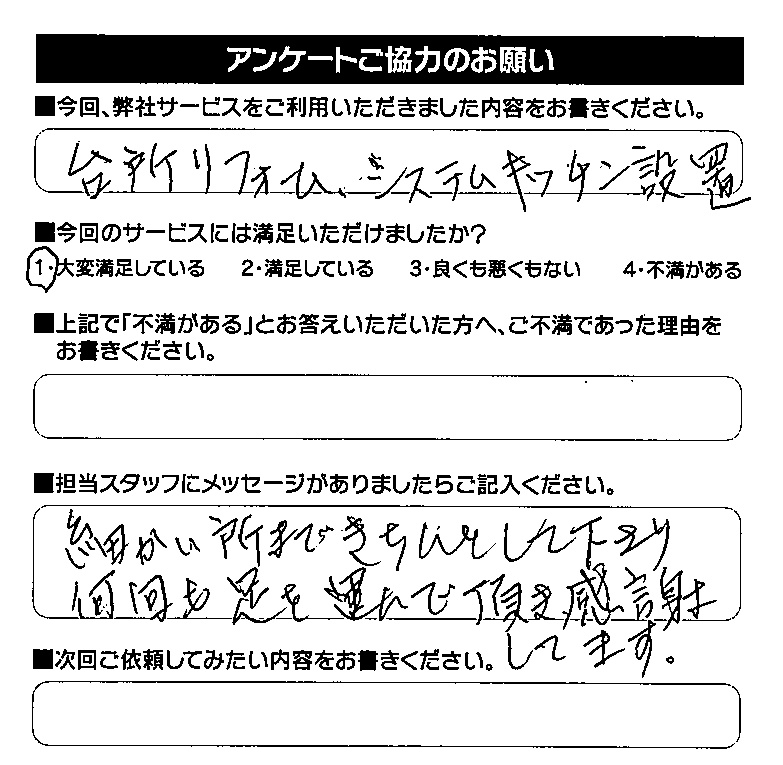 アンケートご協力のお願い
■今回、弊社サービスをご利用いただきました内容をお書きください。
台所リフォーム、システムキッチン設置
■今回のサービスには満足いただけましたか?
1・大変満足している 2・満足している 3・良くも悪くもない 4・不満がある
■上記で「不満がある」とお答えいただいた方へ、ご不満であった理由を
お書きください。
■担当スタッフにメッセージがありましたらご記入ください。
細かい所まできちんとして下さり
何回も足を運んで頂き感謝
してます。
■次回ご依頼してみたい内容をお書きください。